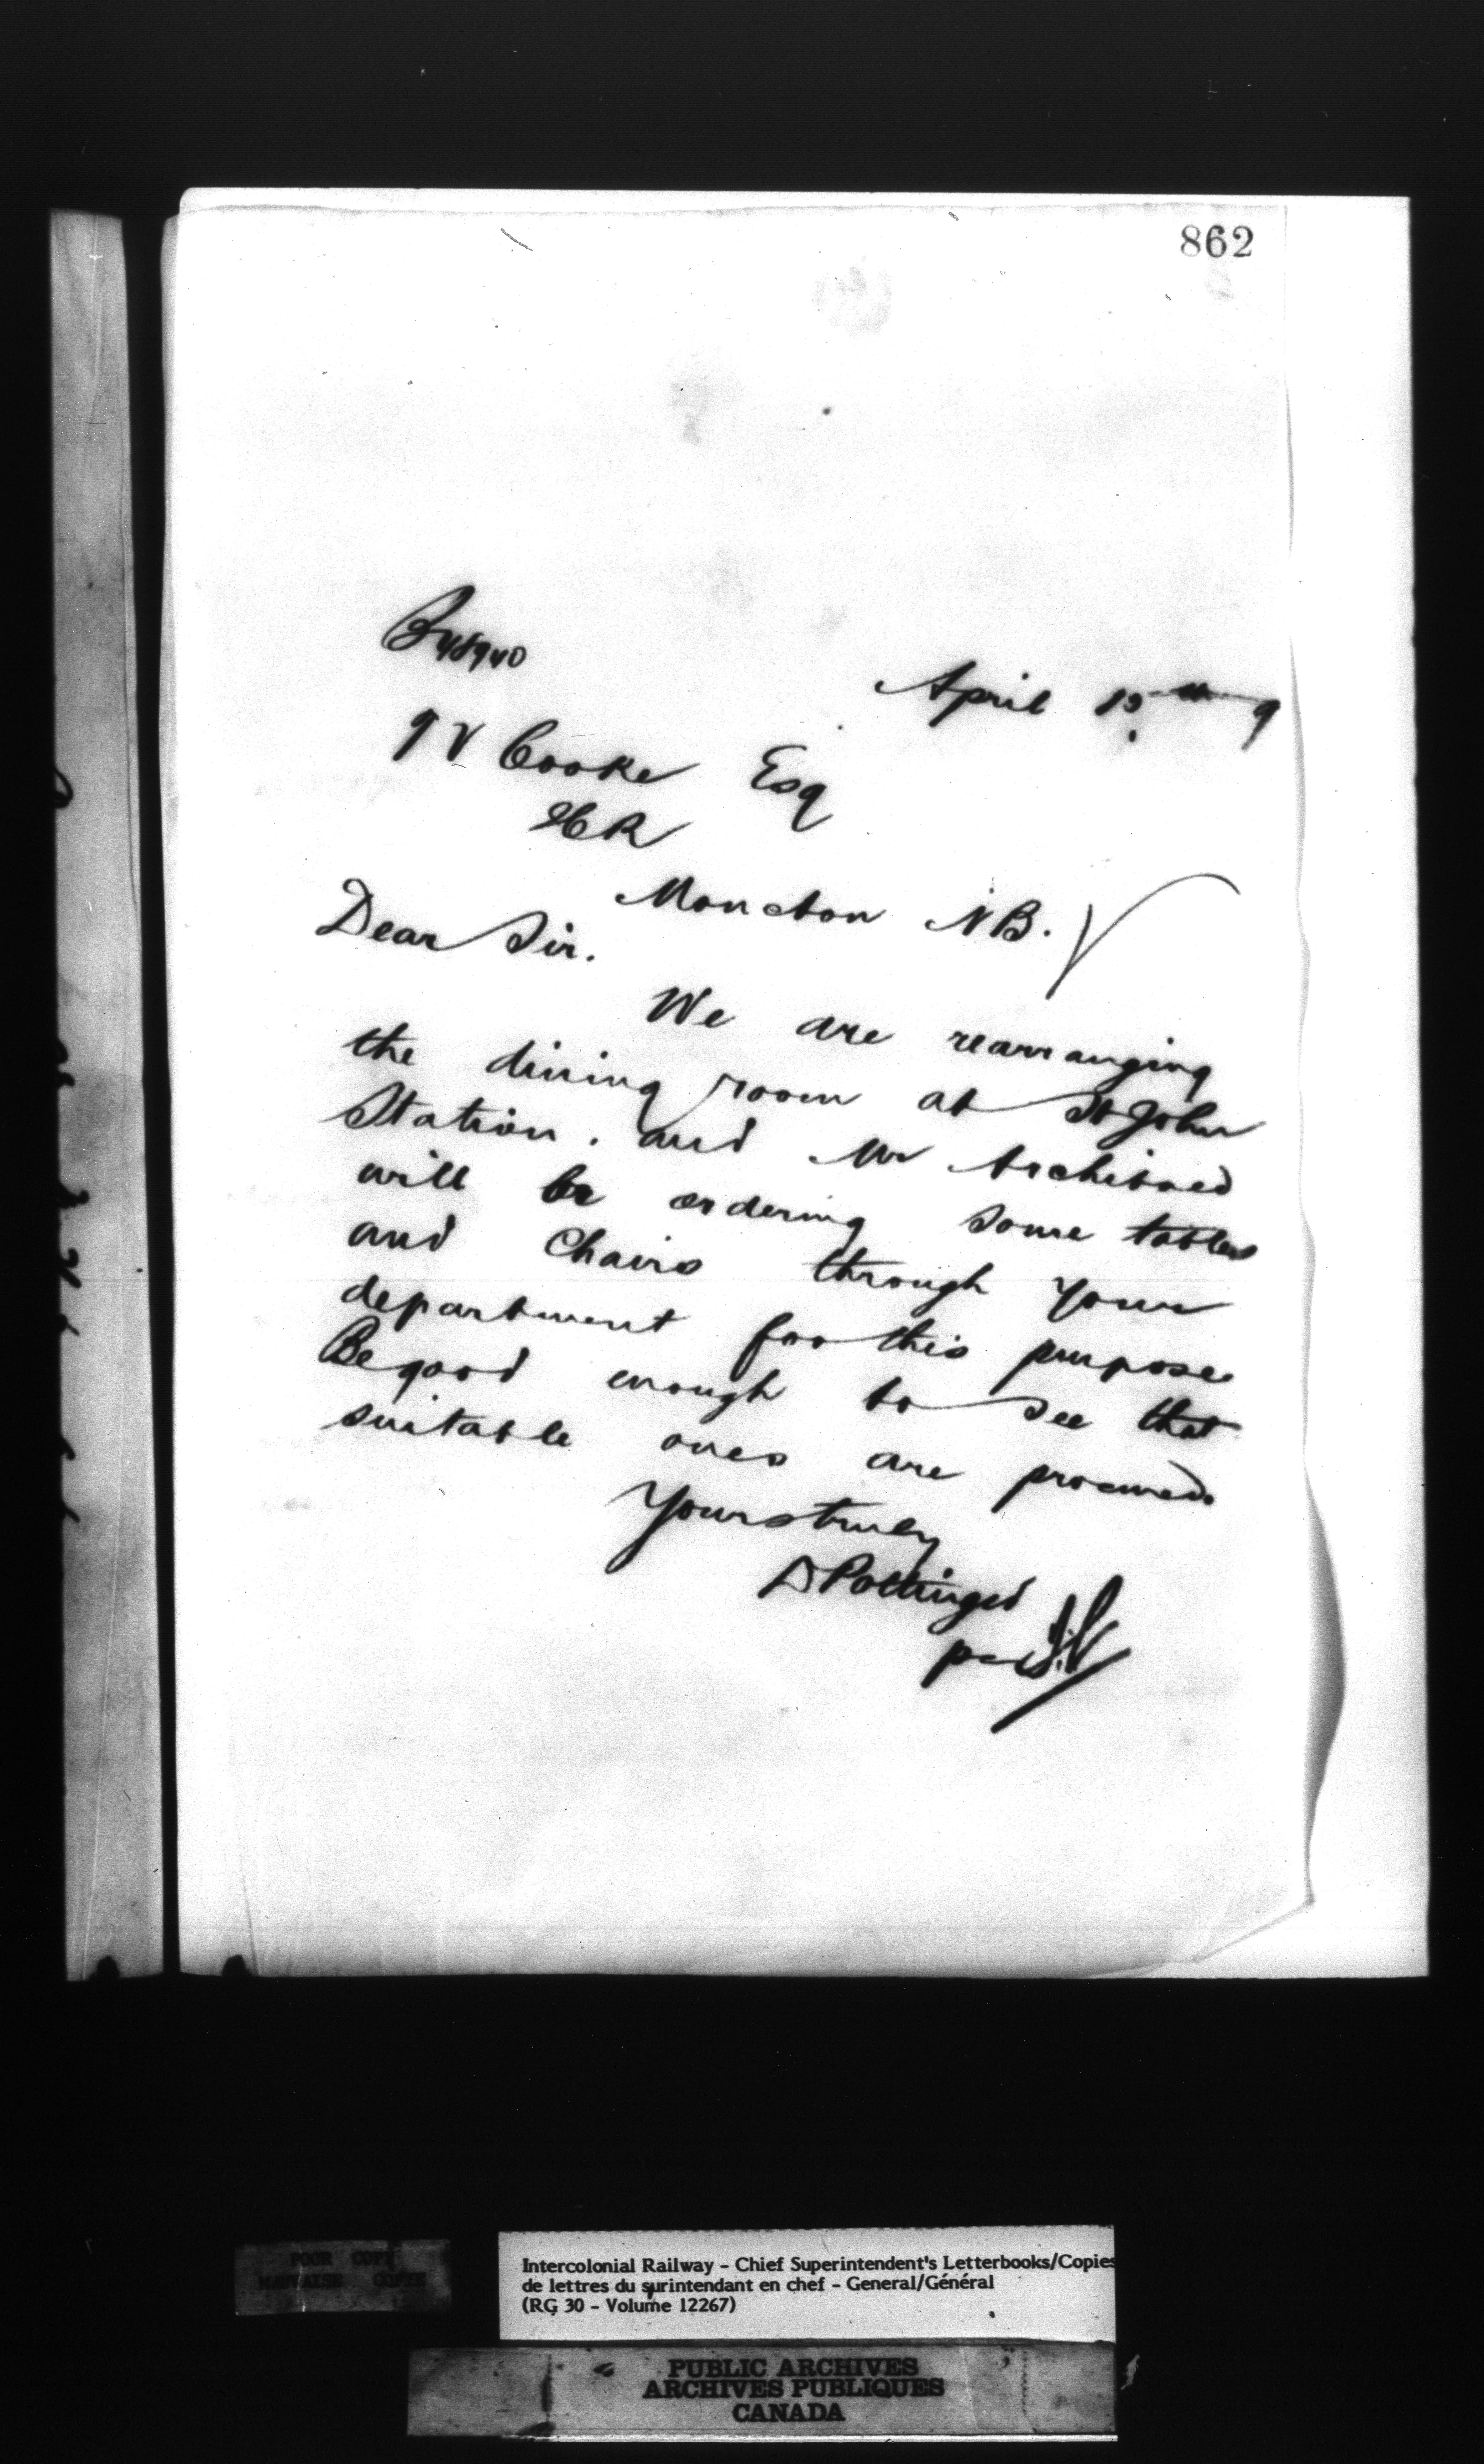 862
B48940
April 13th 9
T V Cooke Esq
ICR
Moncton NB.
Dear Sir.
We are rearranging
the dining room at St John
Station. and Mr Archibald
will be ordering some tables
and Chairs through your
department for this purpose
Be good enough to see that
suitable ones are procured.
Yours truly
D Pottinger
per
POOR COPY
MAUVAISE COPIE
Intercolonial Railway - Chief Superintendent's Letterbooks/Copies
de lettres du surintendant en chef - General/Général
(RG 30 - Volume 12267)
PUBLIC ARCHIVES
ARCHIVES PUBLIQUES
CANADA